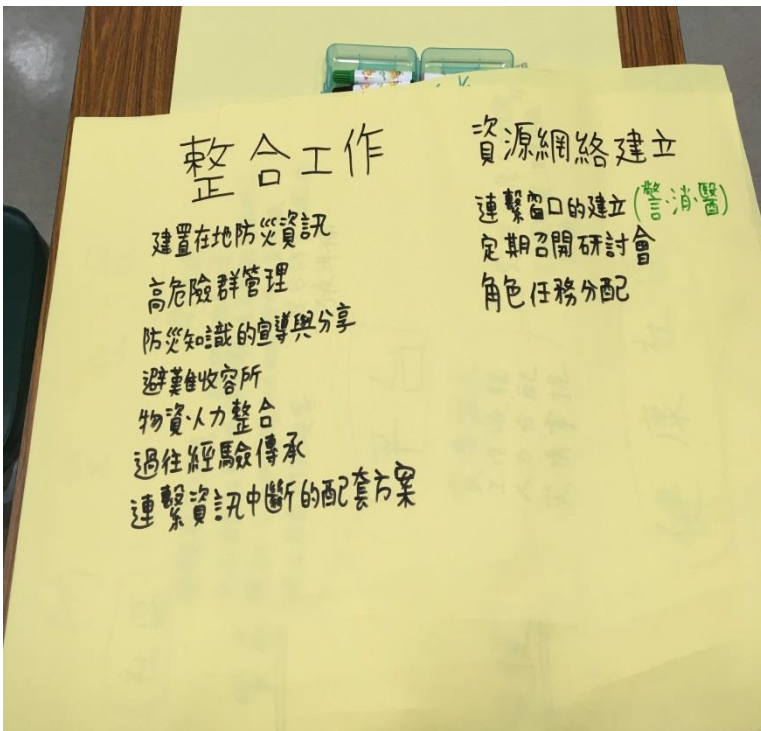 整合工作
建置在地防災資訊
高危險群管理
防災知識的宣導與分享
避難收容所
物資、人力整合
過往經驗傳承
連繫資訊中斷的配套方案
資源網絡建立
連繫窗口的建立(警·消·醫)
定期召開研討會
角色任務分配